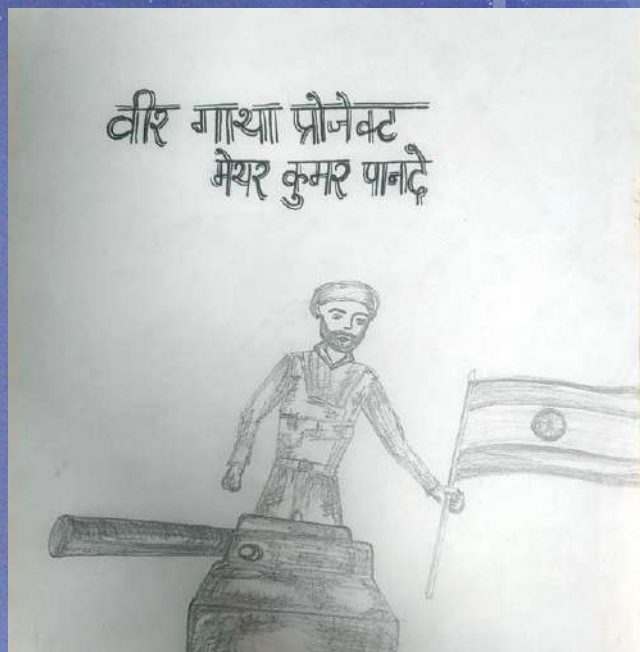 वीर गाथाा प्रोजेक्ट
मेयर कुमर पानदे